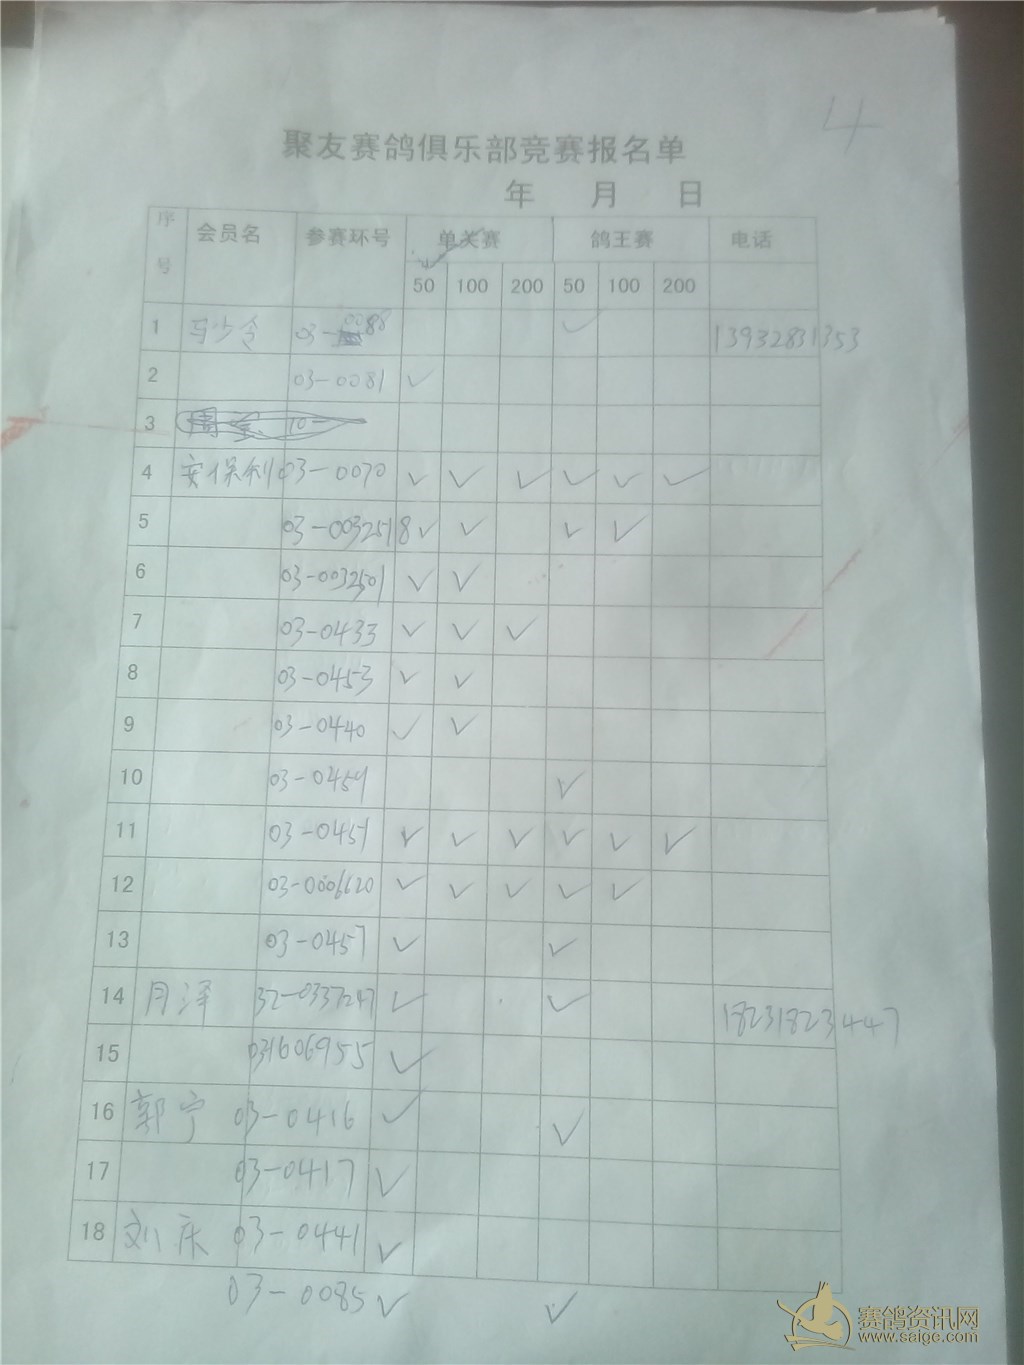 4
聚友赛鸽俱乐部竞赛报名单
年 月 日
序号 会员名 参赛环号 单关赛 鸽王赛 电话
50 100 200 50 100 200
1 马少令 03-0088 ✓ 13932831353
2 03-0081 ✓
3
4 安保利 03-0070 ✓ ✓ ✓ ✓ ✓ ✓
5 03-0032518 ✓ ✓ ✓ ✓
6 03-0032501 ✓ ✓
7 03-0433 ✓ ✓ ✓
8 03-0453 ✓ ✓
9 03-0440 ✓ ✓
10 03-0459 ✓
11 03-0451 ✓ ✓ ✓ ✓ ✓ ✓
12 03-0006620 ✓ ✓ ✓ ✓ ✓
13 03-0457 ✓ ✓
14 月泽 32-0337247 ✓ ✓ 18231823447
15 031606955 ✓
16 郭宁 03-0416 ✓ ✓
17 03-0417 ✓
18 刘庆 03-0441 ✓
03-0085 ✓ ✓
赛鸽资讯网
www.saige.com